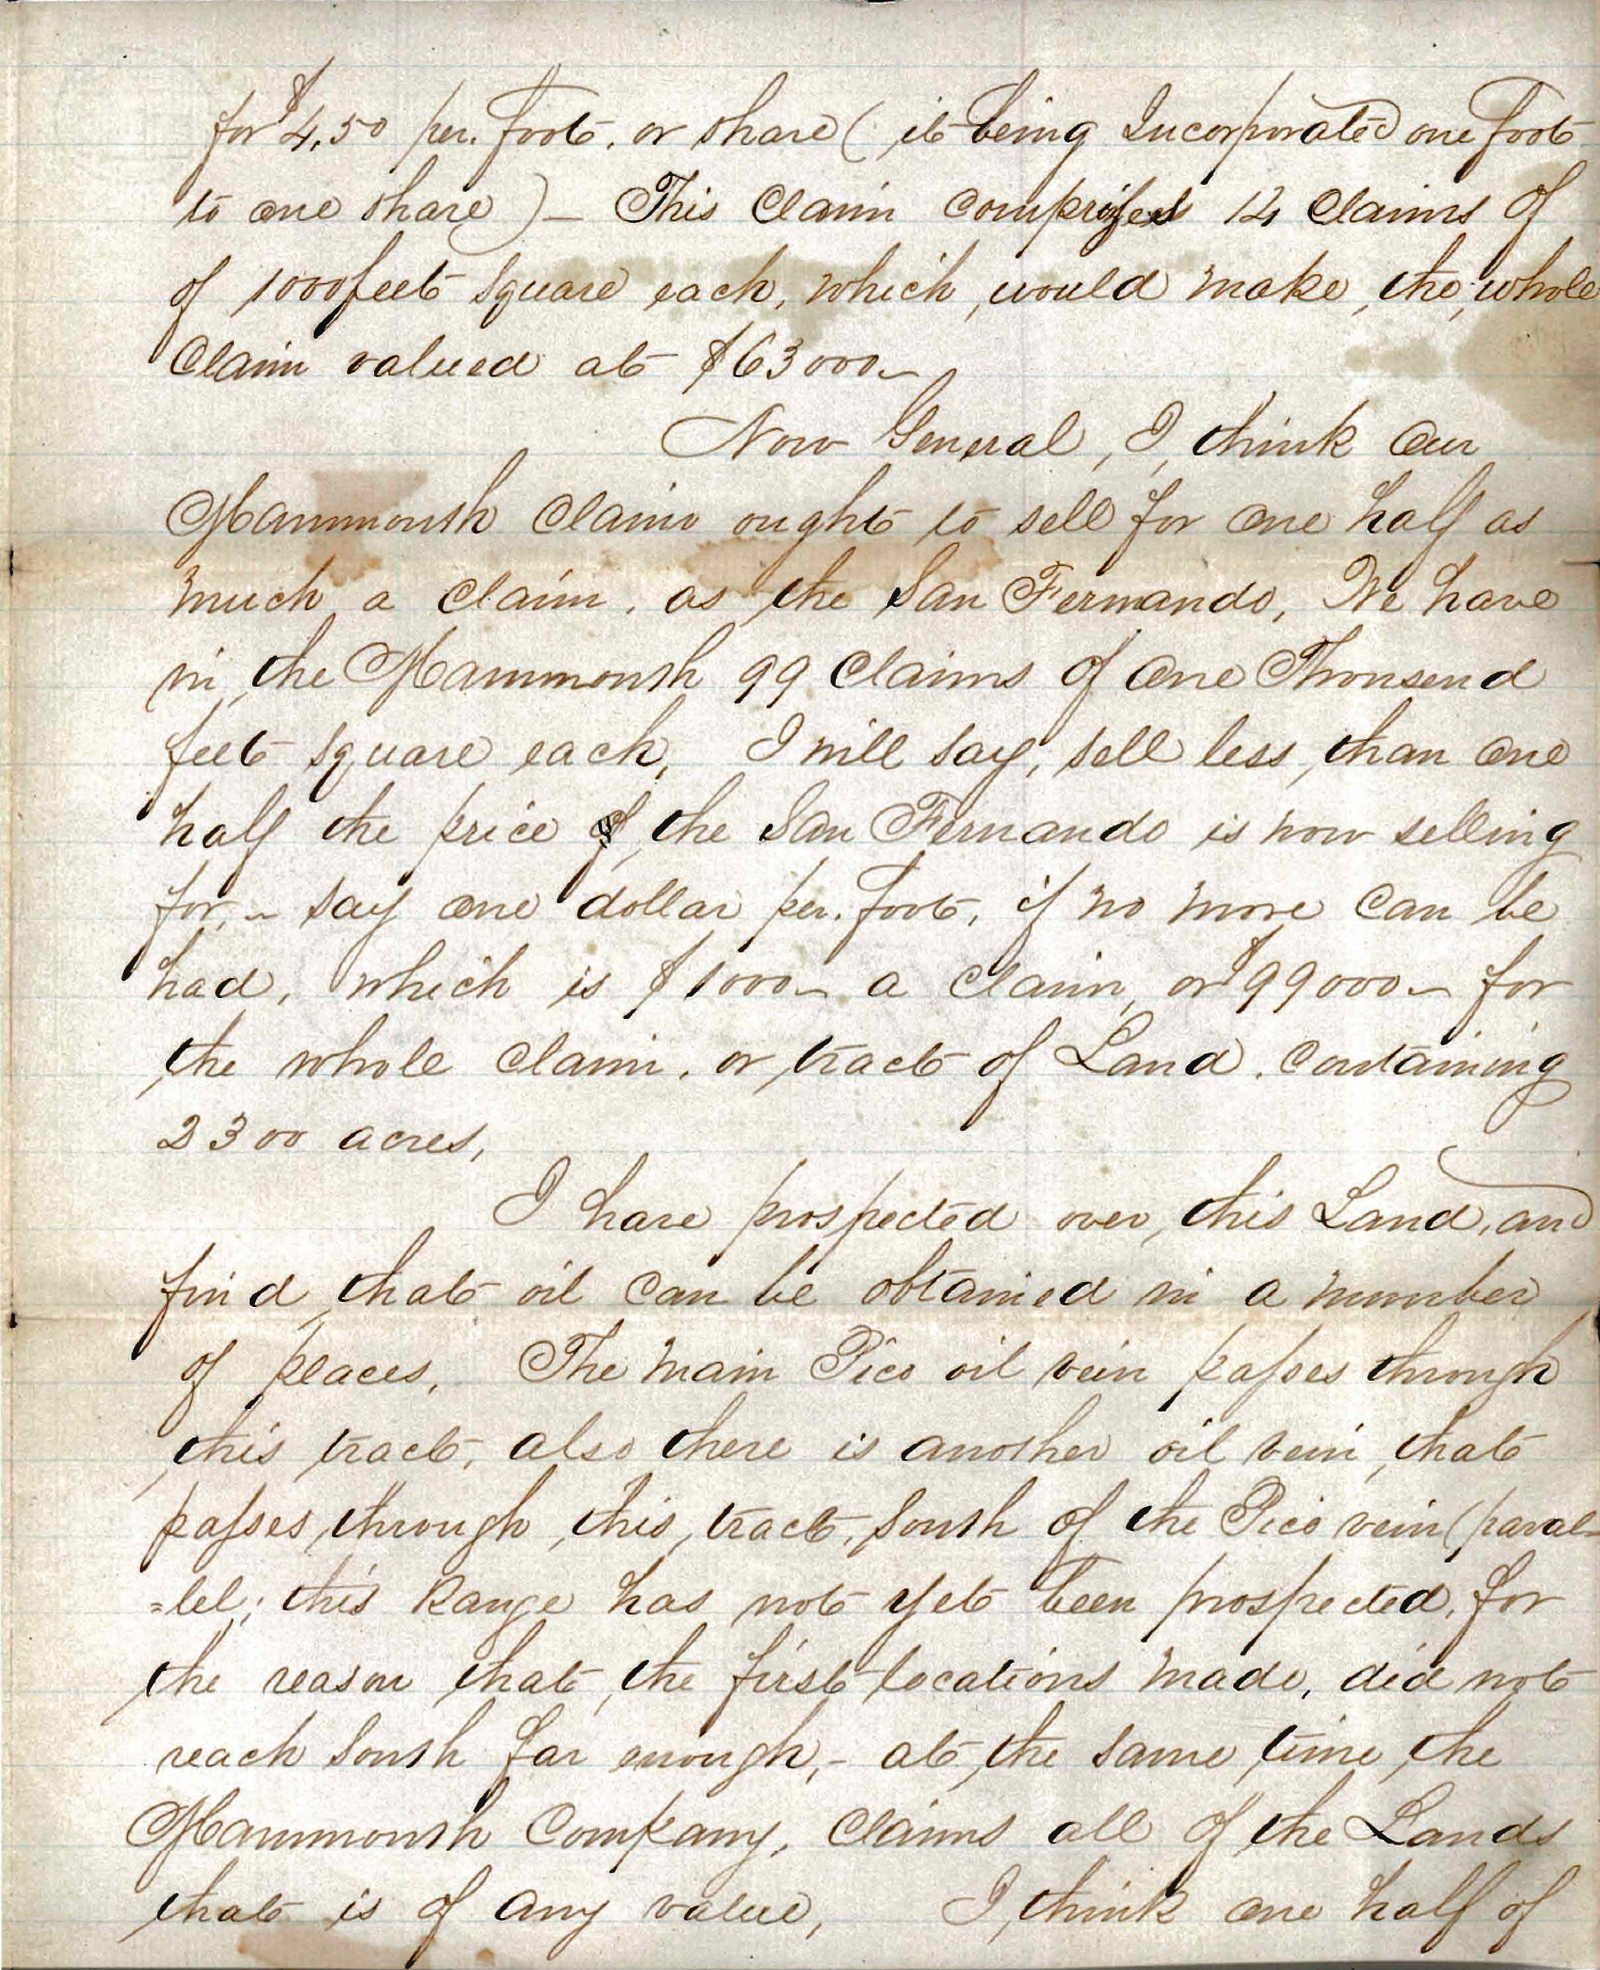 for $4,50 per. foot. or share ( it being Incorporated one foot
to one share ) – This Claim comprises 14 Claims of
of 1000 feet square each, which would make, the, whole
Claim valued at $63000–
Now General, I, think our
Mammouth Claim ought to sell for one half as
much a Claim, as the San Fernando, We have
in the Mammouth 99 Claims of One Thousend
feet square each, I will say, sell less than one
half the price of the San Fernando is now selling
for, – say one dollar per. foot, if no more can be
had, which is $1000– a Claim, or $99000– for
the whole Claim, or tract of Land, containing
2300 acres,
I have prospected over this Land, and
find that oil can be obtained in a number
of places, The main Pico oil vein passes through
this tract, also there is another oil vein that
passes through this tract, South of the Pico vein (paral-
=lel; this Range has not yet been prospected, for
the reason that the first locations made, did not
reach South far enough, – at the same time the
Mammouth Company, Claims all of the Lands
that is of any value, I think one half of